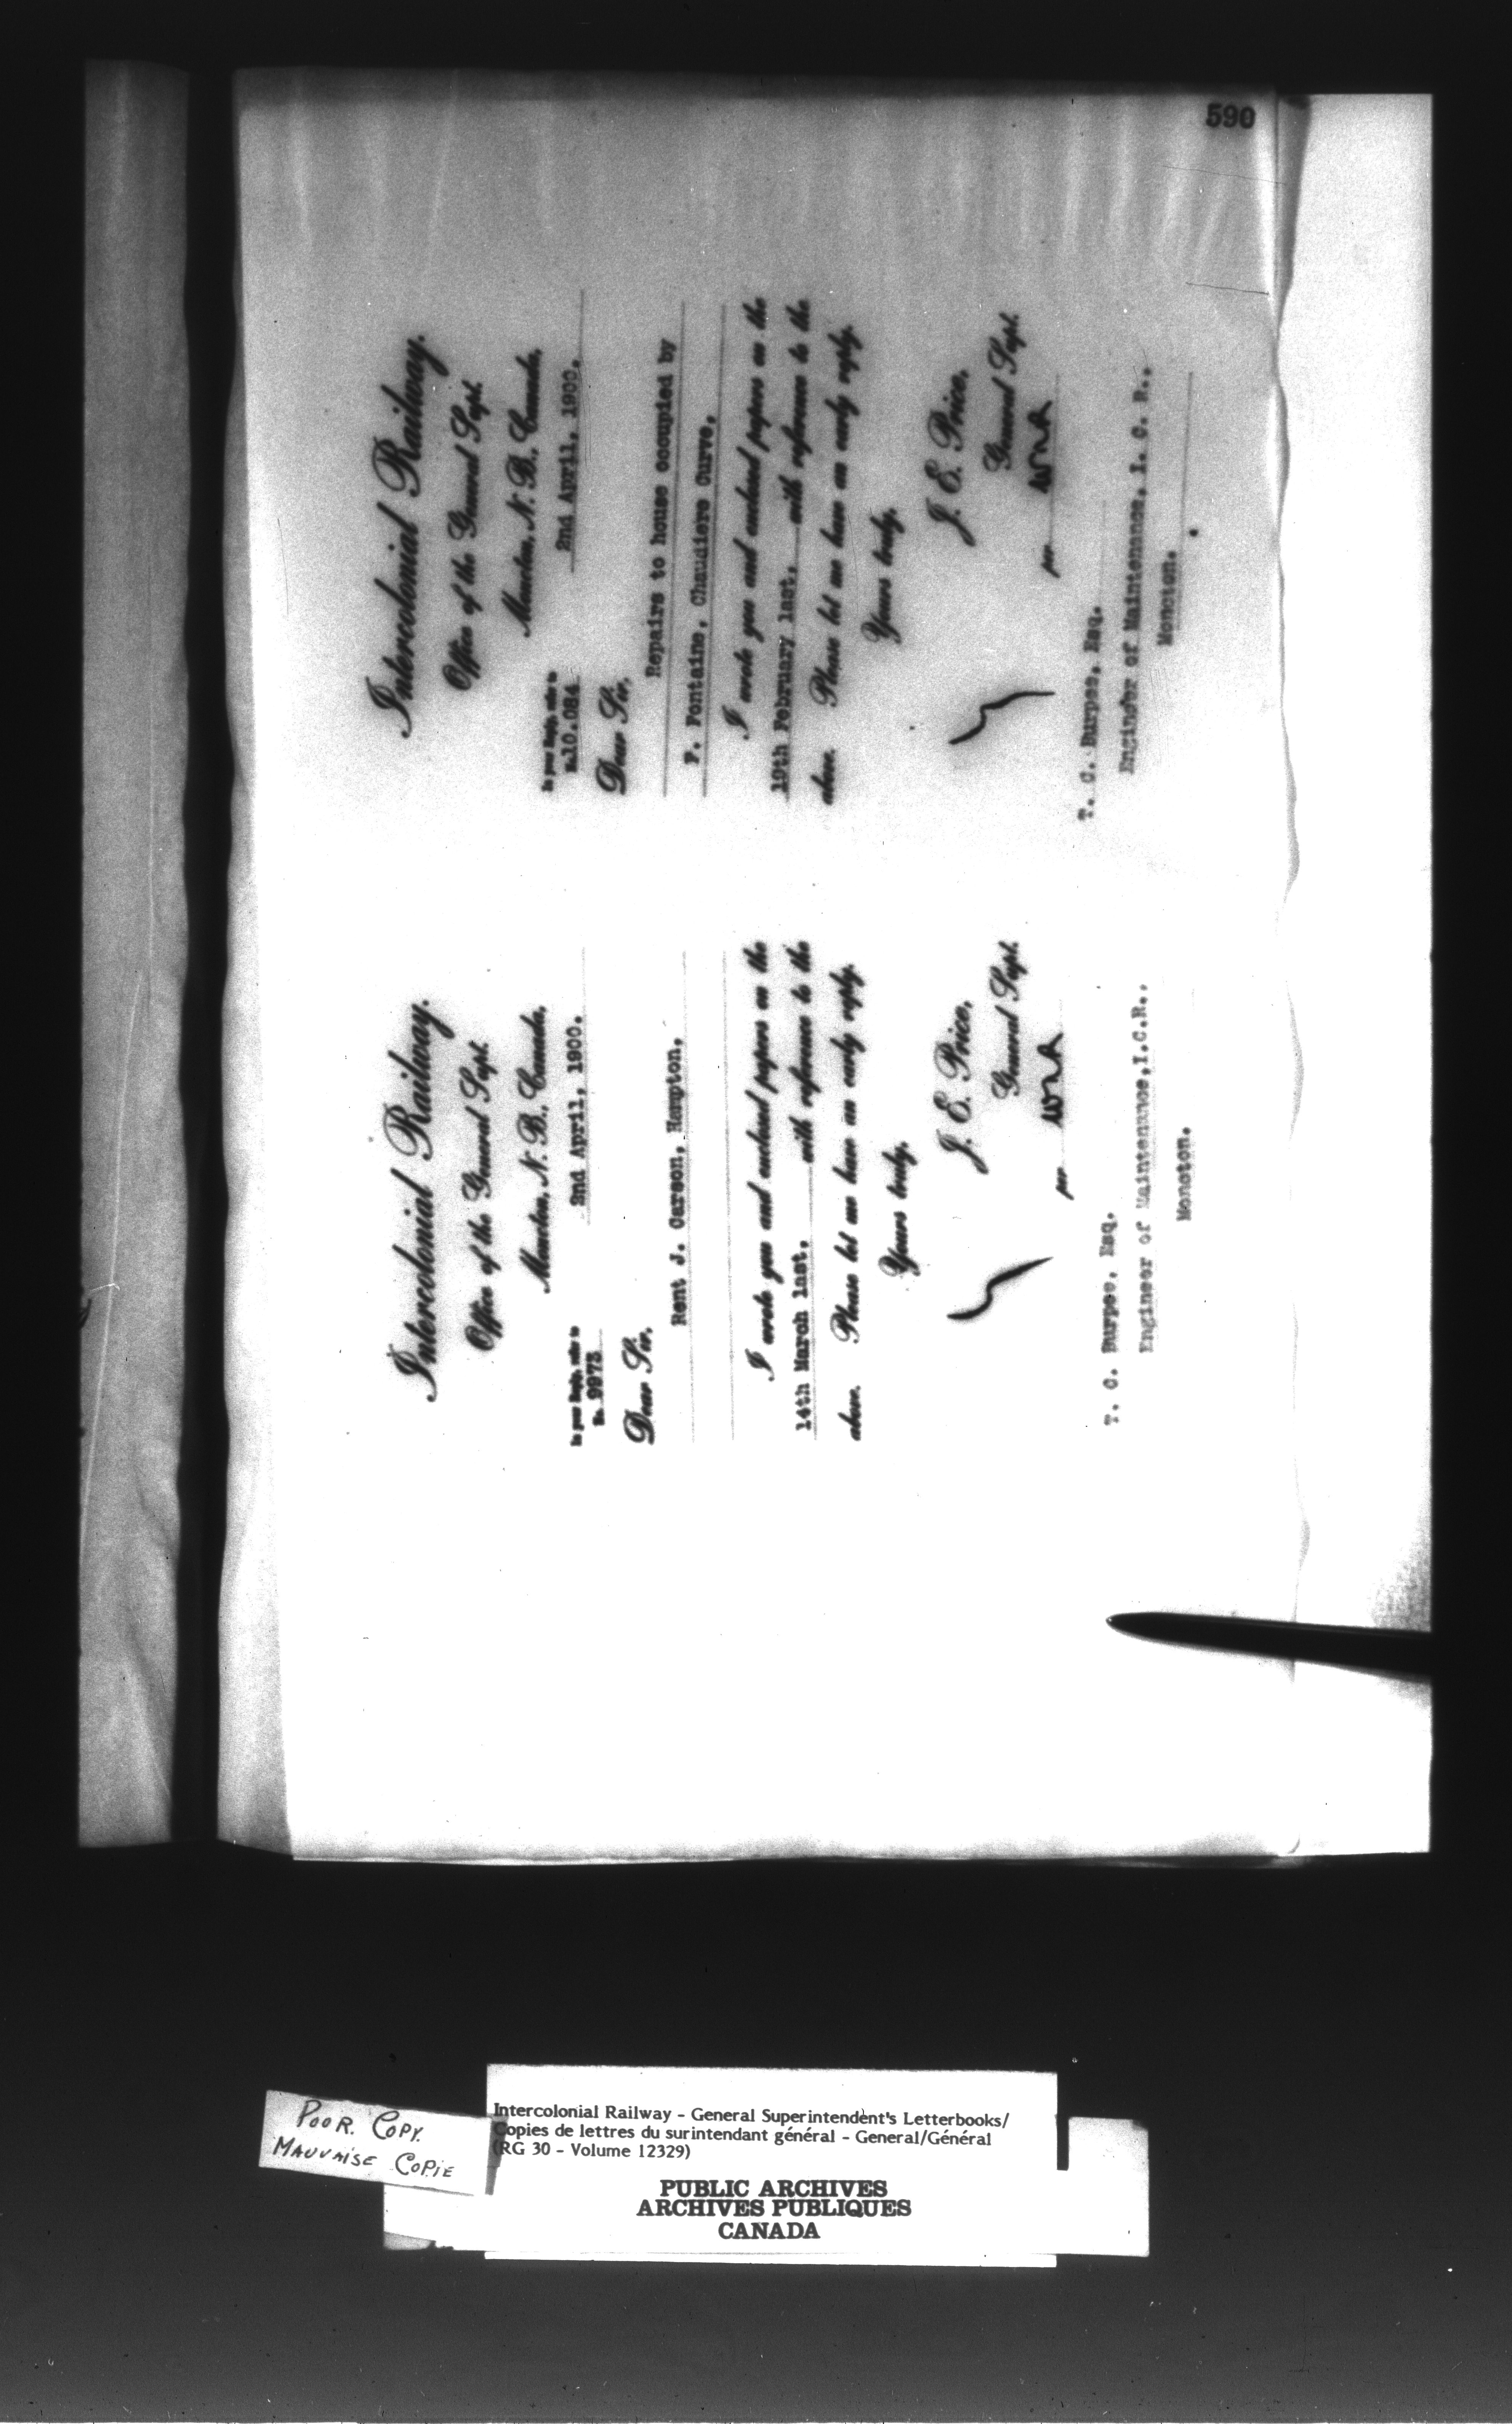 590
Intercolonial Railway.
Office of the General Supt.
Moncton, N. B., Canada,
2nd April, 1900.
In your Reply, refer to
No. 9973
Dear Sir,
Rent J. Carson, Hampton.
I wrote you and enclosed papers on the
14th March last, with reference to the
above. Please let me have an early reply.
Yours truly,
J. E. Price,
General Supt.
per
T. C. Burpee, Esq.
Engineer of Maintenance, I.C.R.,
Moncton.
Intercolonial Railway.
Office of the General Supt.
Moncton, N. B., Canada,
2nd April, 1900.
In your Reply, refer to
No. 10.084
Dear Sir,
Repairs to house occupied by
F. Fontaine, Chaudiere Curve.
I wrote you and enclosed papers on the
19th February last, with reference to the
above. Please let me have an early reply.
Yours truly,
J. E. Price,
General Supt.
per
T. C. Burpee, Esq.
Engineer of Maintenance, I. C. R.,
Moncton.
POOR. COPY.
MAUVAISE COPIE
Intercolonial Railway - General Superintendent's Letterbooks/
Copies de lettres du surintendant général - General/Général
(RG 30 - Volume 12329)
PUBLIC ARCHIVES
ARCHIVES PUBLIQUES
CANADA